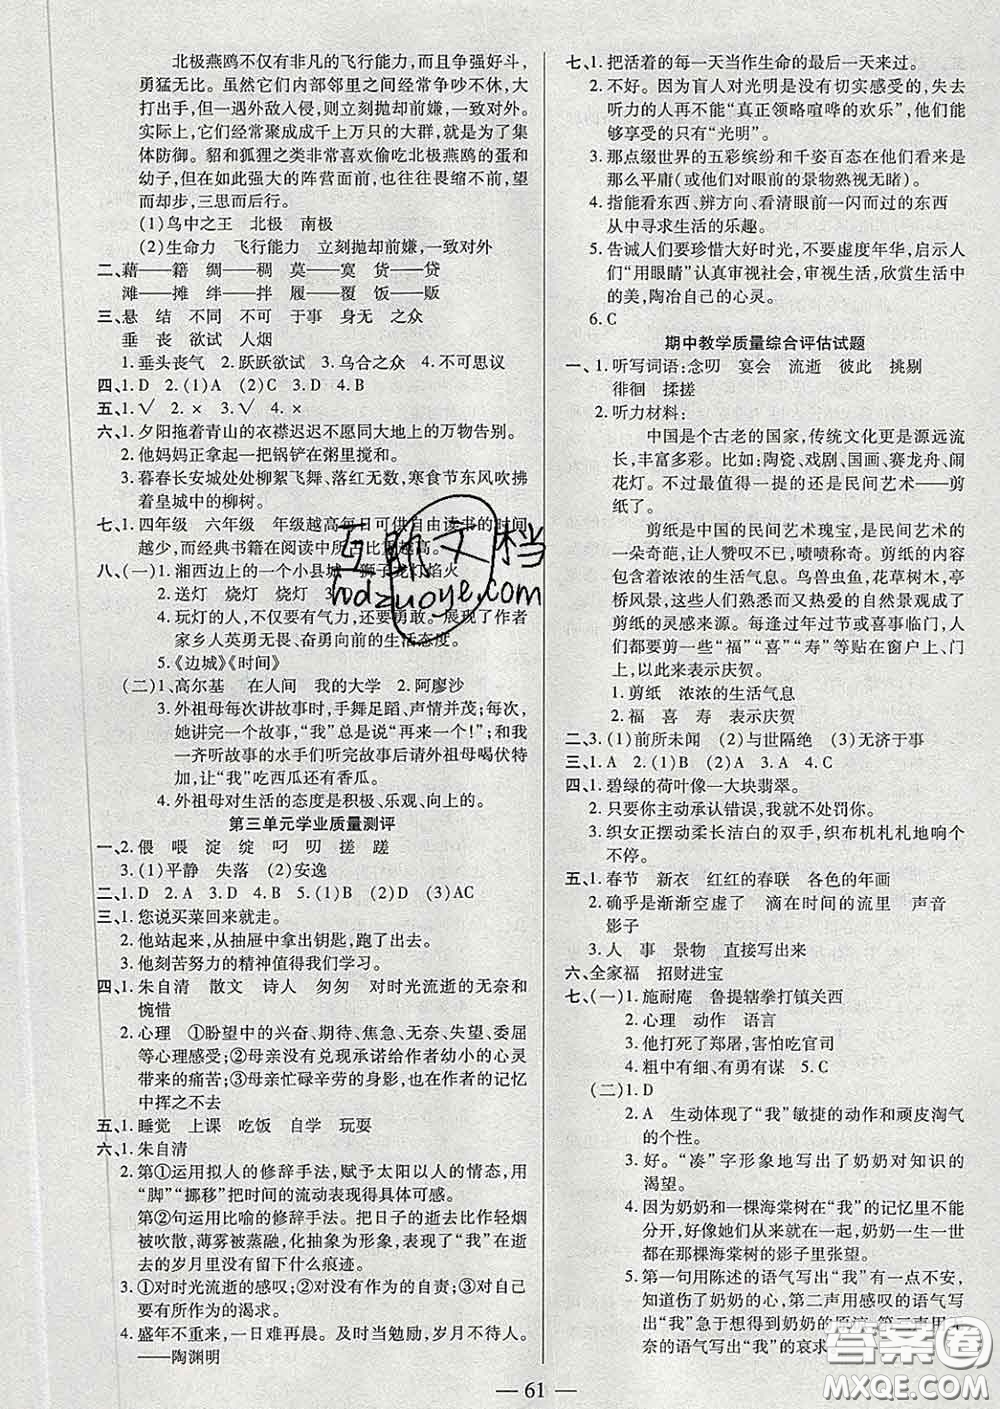 北极燕鸥不仅有非凡的飞行能力,而且争强好斗、
勇猛无比。虽然它们内部邻里之间经常争吵不休,大
打出手,但一遇外敌入侵,则立刻抛却前嫌,一致对外。
实际上,它们经常聚成成千上万只的大群,就是为了集
体防御。貂和狐狸之类非常喜欢偷吃北极燕鸥的蛋和
幼子,但在如此强大的阵营面前,也往往畏缩不前,望
而却步,三思而后行。
(1)鸟中之王 北极 南极
(2)生命力 飞行能力 立刻抛却前嫌,一致对外
二、藉——籍 绸——稠 莫——寞 货——贷
滩——摊 绊——拌 履——覆 饭——贩
三、悬 结 不同 不可 于事 身无 之众
垂 丧 欲试 人烟
1.垂头丧气 2.跃跃欲试 3.乌合之众 4.不可思议
四、1.D 2.(1)A (2)C 3.D 4.D
五、1.√ 2.× 3.√ 4.×
六、1.夕阳拖着青山的衣襟迟迟不愿同大地上的万物告别。
2.他妈妈正拿起一把锅铲在粥里搅和。
3.暮春长安城处处柳絮飞舞、落红无数,寒食节东风吹拂
着皇城中的柳树。
七、1.四年级 六年级 年级越高每日可供自由读书的时间
越少,而经典书籍在阅读中所占比重越高。
八、(一)1.湘西边上的一个小县城 狮子龙灯焰火
2.送灯 烧灯 烧灯 3.
4.玩灯的人,不仅要有力气,还要勇敢。展现了作者
家乡人英勇无畏、奋勇向前的生活态度。
5.《边城》《时间》
(二)1.高尔基 在人间 我的大学 2.阿廖沙
3.外祖母每次讲故事时,手舞足蹈、声情并茂;每次,
她讲完一个故事,“我”总是说“再来一个!”;和我
一齐听故事的水手们听完故事后请外祖母喝伏特
加,让“我”吃西瓜还有香瓜。
4.外祖母对生活的态度是积极、乐观、向上的。
第三单元学业质量测评
一、2.偎 喂 淀 绽 叼 叨 搓 蹉
3.(1)平静 失落 (2)安逸
二、1.D 2.A 3.D 4.B 5.(1)B (2)D (3)AC
三、1.您说买菜回来就走。
2.他站起来,从抽屉中拿出钥匙,跑了出去。
3.他刻苦努力的精神值得我们学习。
四、1.朱自清 散文 诗人 匆匆 对时光流逝的无奈和
惋惜
2.心理 ①盼望中的兴奋、期待、焦急、无奈、失望、委屈
等心理感受;②母亲没有兑现承诺给作者幼小的心灵
带来的痛苦;③母亲忙碌辛劳的身影,在作者的记忆
中挥之不去
五、1.睡觉 上课 吃饭 自学 玩耍
六、1.朱自清
2.第①运用拟人的修辞手法,赋予太阳以人的情态,用
“脚”“挪移”把时间的流动表现得具体可感。
第②句运用比喻的修辞手法。把日子的逝去比作轻烟
被吹散,薄雾被蒸融,化抽象为形象,表现了“我”在逝
去的岁月里没有留下什么痕迹。
3.①对时光流逝的感叹;②对没有作为的自责;③对自己
要有所作为的渴求。
4.盛年不重来,一日难再晨。及时当勉励,岁月不待人。
——陶渊明
七、1.把活着的每一天当作生命的最后一天来过。
2.不好。因为盲人对光明是没有切实感受的,失去
听力的人再不能“真正领略喧哗的欢乐”,他们能
够享受的只有“光明”。
3.那点缀世界的五彩缤纷和千姿百态在他们看来是
那么平庸(或他们对眼前的景物熟视无睹)。
4.指能看东西、辨方向、看清眼前一闪而过的东西
从中寻求生活的乐趣。
5.告诫人们要珍惜大好时光,不要虚度年华,启示人
们“用眼睛”认真审视社会,审视生活,欣赏生活中
的美,陶冶自己的心灵。
6.C
期中教学质量综合评估试题
一、1.听写词语:念叨 宴会 流逝 彼此 挑剔
徘徊 揉搓
2.听力材料:
中国是个古老的国家,传统文化更是源远流
长,丰富多彩。比如:陶瓷、戏剧、国画、赛龙舟、闹
花灯。不过最值得一提的还是民间艺术——剪
纸了。
剪纸是中国的民间艺术瑰宝,是民间艺术的
一朵奇葩,让人赞叹不已,啧啧称奇。剪纸的内容
包含着浓浓的生活气息。鸟兽虫鱼,花草树木,亭
桥风景,这些人们熟悉而又热爱的自然景观成了
剪纸的灵感来源。每逢过年过节或喜事临门,人
们都要剪一些“福”“喜”“寿”等贴在窗户上、门
上,以此来表示庆贺。
1.剪纸 浓浓的生活气息
2.福 喜 寿 表示庆贺
二、3.(1)前所未闻 (2)与世隔绝 (3)无济于事
三、1.A 2.B 3.A 4.C
四、1.碧绿的荷叶像一大块翡翠。
2.只要你主动承认错误,我就不处罚你。
3.织女正摆动柔长洁白的双手,织布机札札地响个
不停。
五、1.春节 新衣 红红的春联 各色的年画
2.确乎是渐渐空虚了 滴在时间的流里 声音
影子
3.人 事 景物 直接写出来
六、全家福 招财进宝
七、(一)1.施耐庵 鲁提辖拳打镇关西
2.心理 动作 语言
3.他打死了郑屠,害怕吃官司
4.粗中有细、有勇有谋 5.C
(二)1.D
2.A 生动体现了“我”敏捷的动作和顽皮淘气
的个性。
3.好。“凑”字形象地写出了奶奶对知识的
渴望。
4.因为奶奶和一棵海棠树在“我”的记忆里不能
分开,好像她们从来就在一起,奶奶一生一世
都在那棵海棠树的影子里张望。
5.第一句用陈述的语气写出“我”有一点不安,
知道伤了奶奶的心,第二声用感叹的语气写
出“我”急于想得到奶奶的原谅,第三声用无
奈的语气写出“我”的哀求
— 61 —
互助文档
hodzuoye.com
答案圈
MXQE.COM